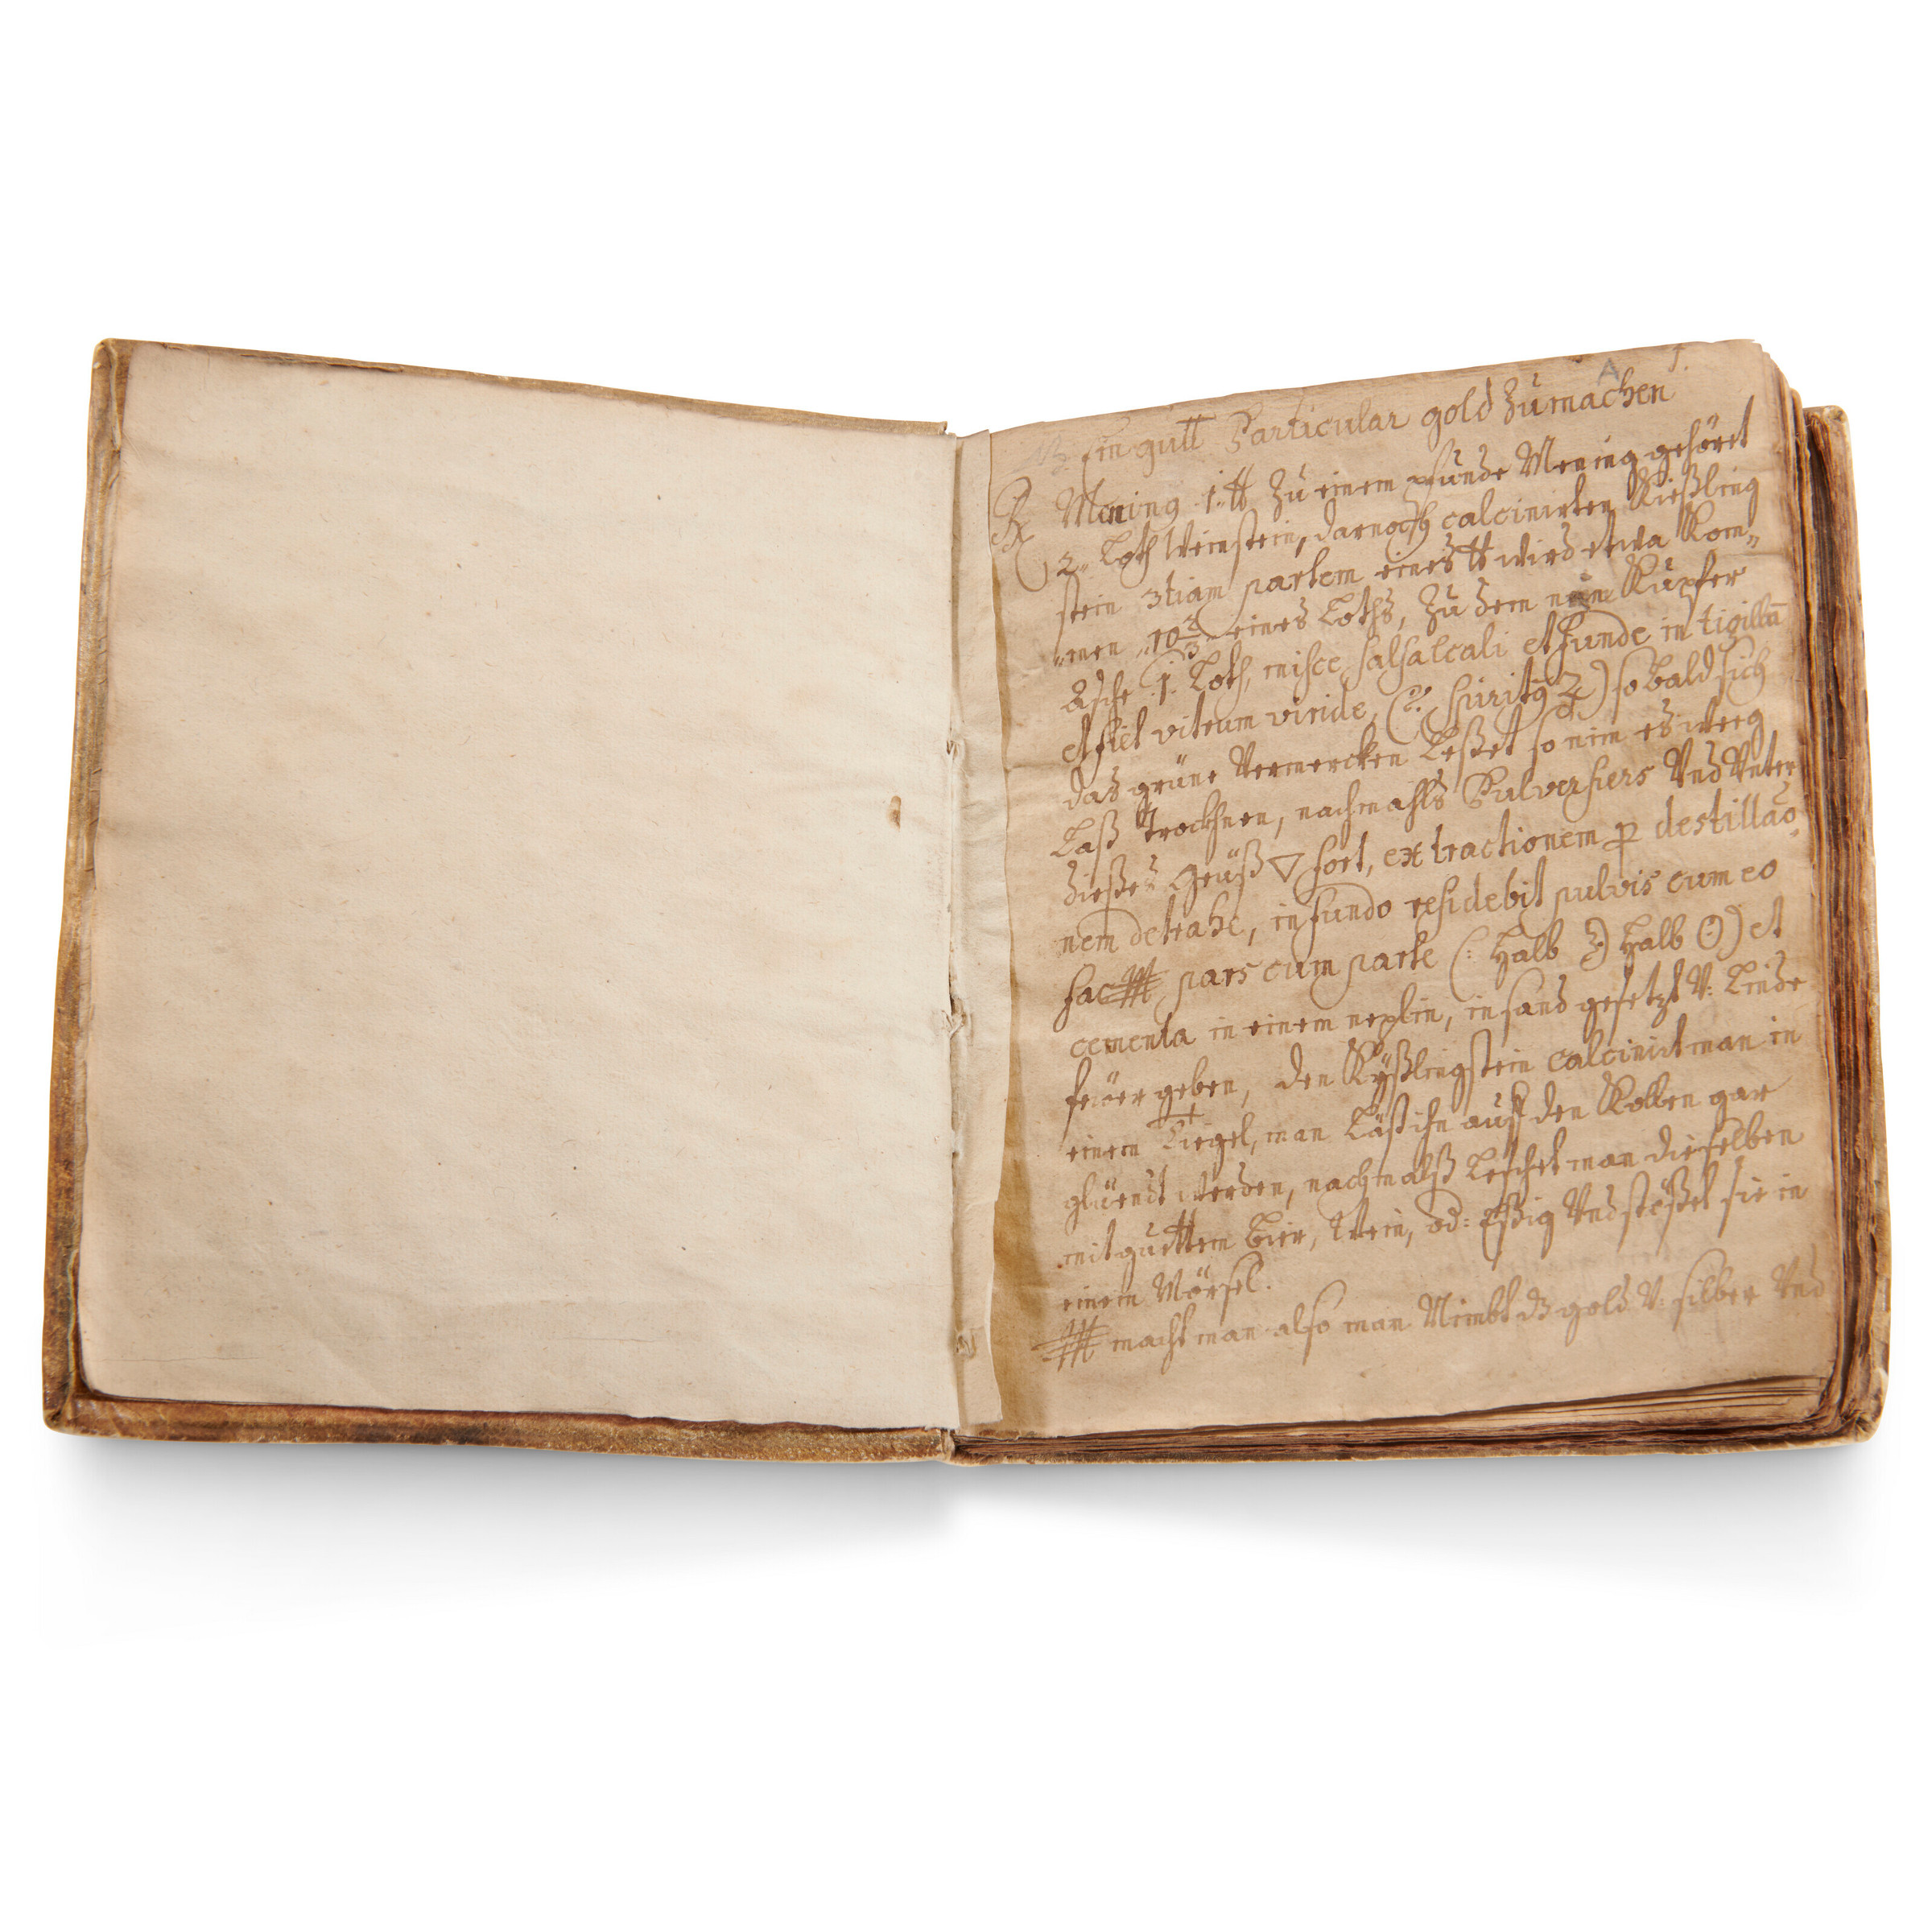 A 1.
NB Ein gutt Particular gold Zumachen
℞ Mening 1 ℔ Zu einem pfunde Mening gehöret
2 Loth Weinstein, darnach calcinirten Kießling
stein 3tiam partem eines ℔ wird etwa Kom„
„men 10⅔ eines Loths, Zu dem Kupfer
Asche .1. Loth, misce salsalcali et funde in tigillū
et fiet vitrum viride, (: spiritq ♃) so bald sich
das grüne Vermercken Leßet so nim es weeg
Laß trockhnen, nachmahls Pulversiers Vnd Vnter
Geüß ▽ fort, extractionem p destillao
nem detrahe, in fundo residebit pulvis cum eo
fac pars cum parte (: Halb ☽ Halb ☉) et
cementa in einem in sand gesetzt V: Linde
feüer geben, den Kÿßlingstein calcinirt man in
einem Tiegel, man Läst ihn auff den Kollen gar
glüendt werden, nachmalß Leschet man dieselben
mit guettem Bier, Wein, od: Eßig Vnd stößet sie in
einem Mörsel.
macht man also man Nimbt dz gold V: silber Vnd